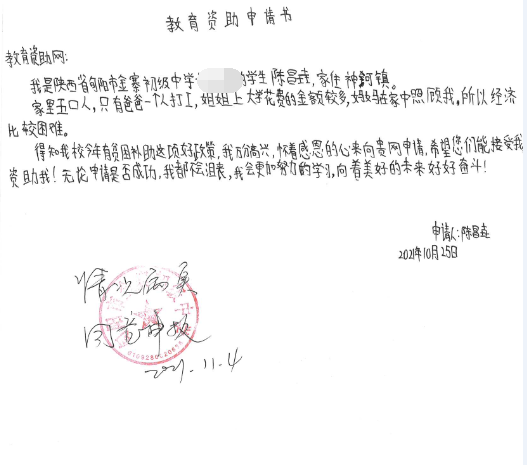 教育资助申请书
教育资助网:
我是陕西省旬阳市金寨初级中学 的学生陈昌垚,家住神河镇。
家里五口人,只有爸爸一个人打工,姐姐上大学花费的金额较多,妈妈在家中照顾我,所以经济
比较困难。
得知我校今年有贫困补助这项好政策,我万分高兴,怀着感恩的心来向贵网申请,希望您们能接受我
资助我!无论申请是否成功,我都不会沮丧,我会更加努力的学习,向着美好的未来好好奋斗!
申请人:陈昌垚
2021年10月25日
情况属实
同意申报
2021.11.4